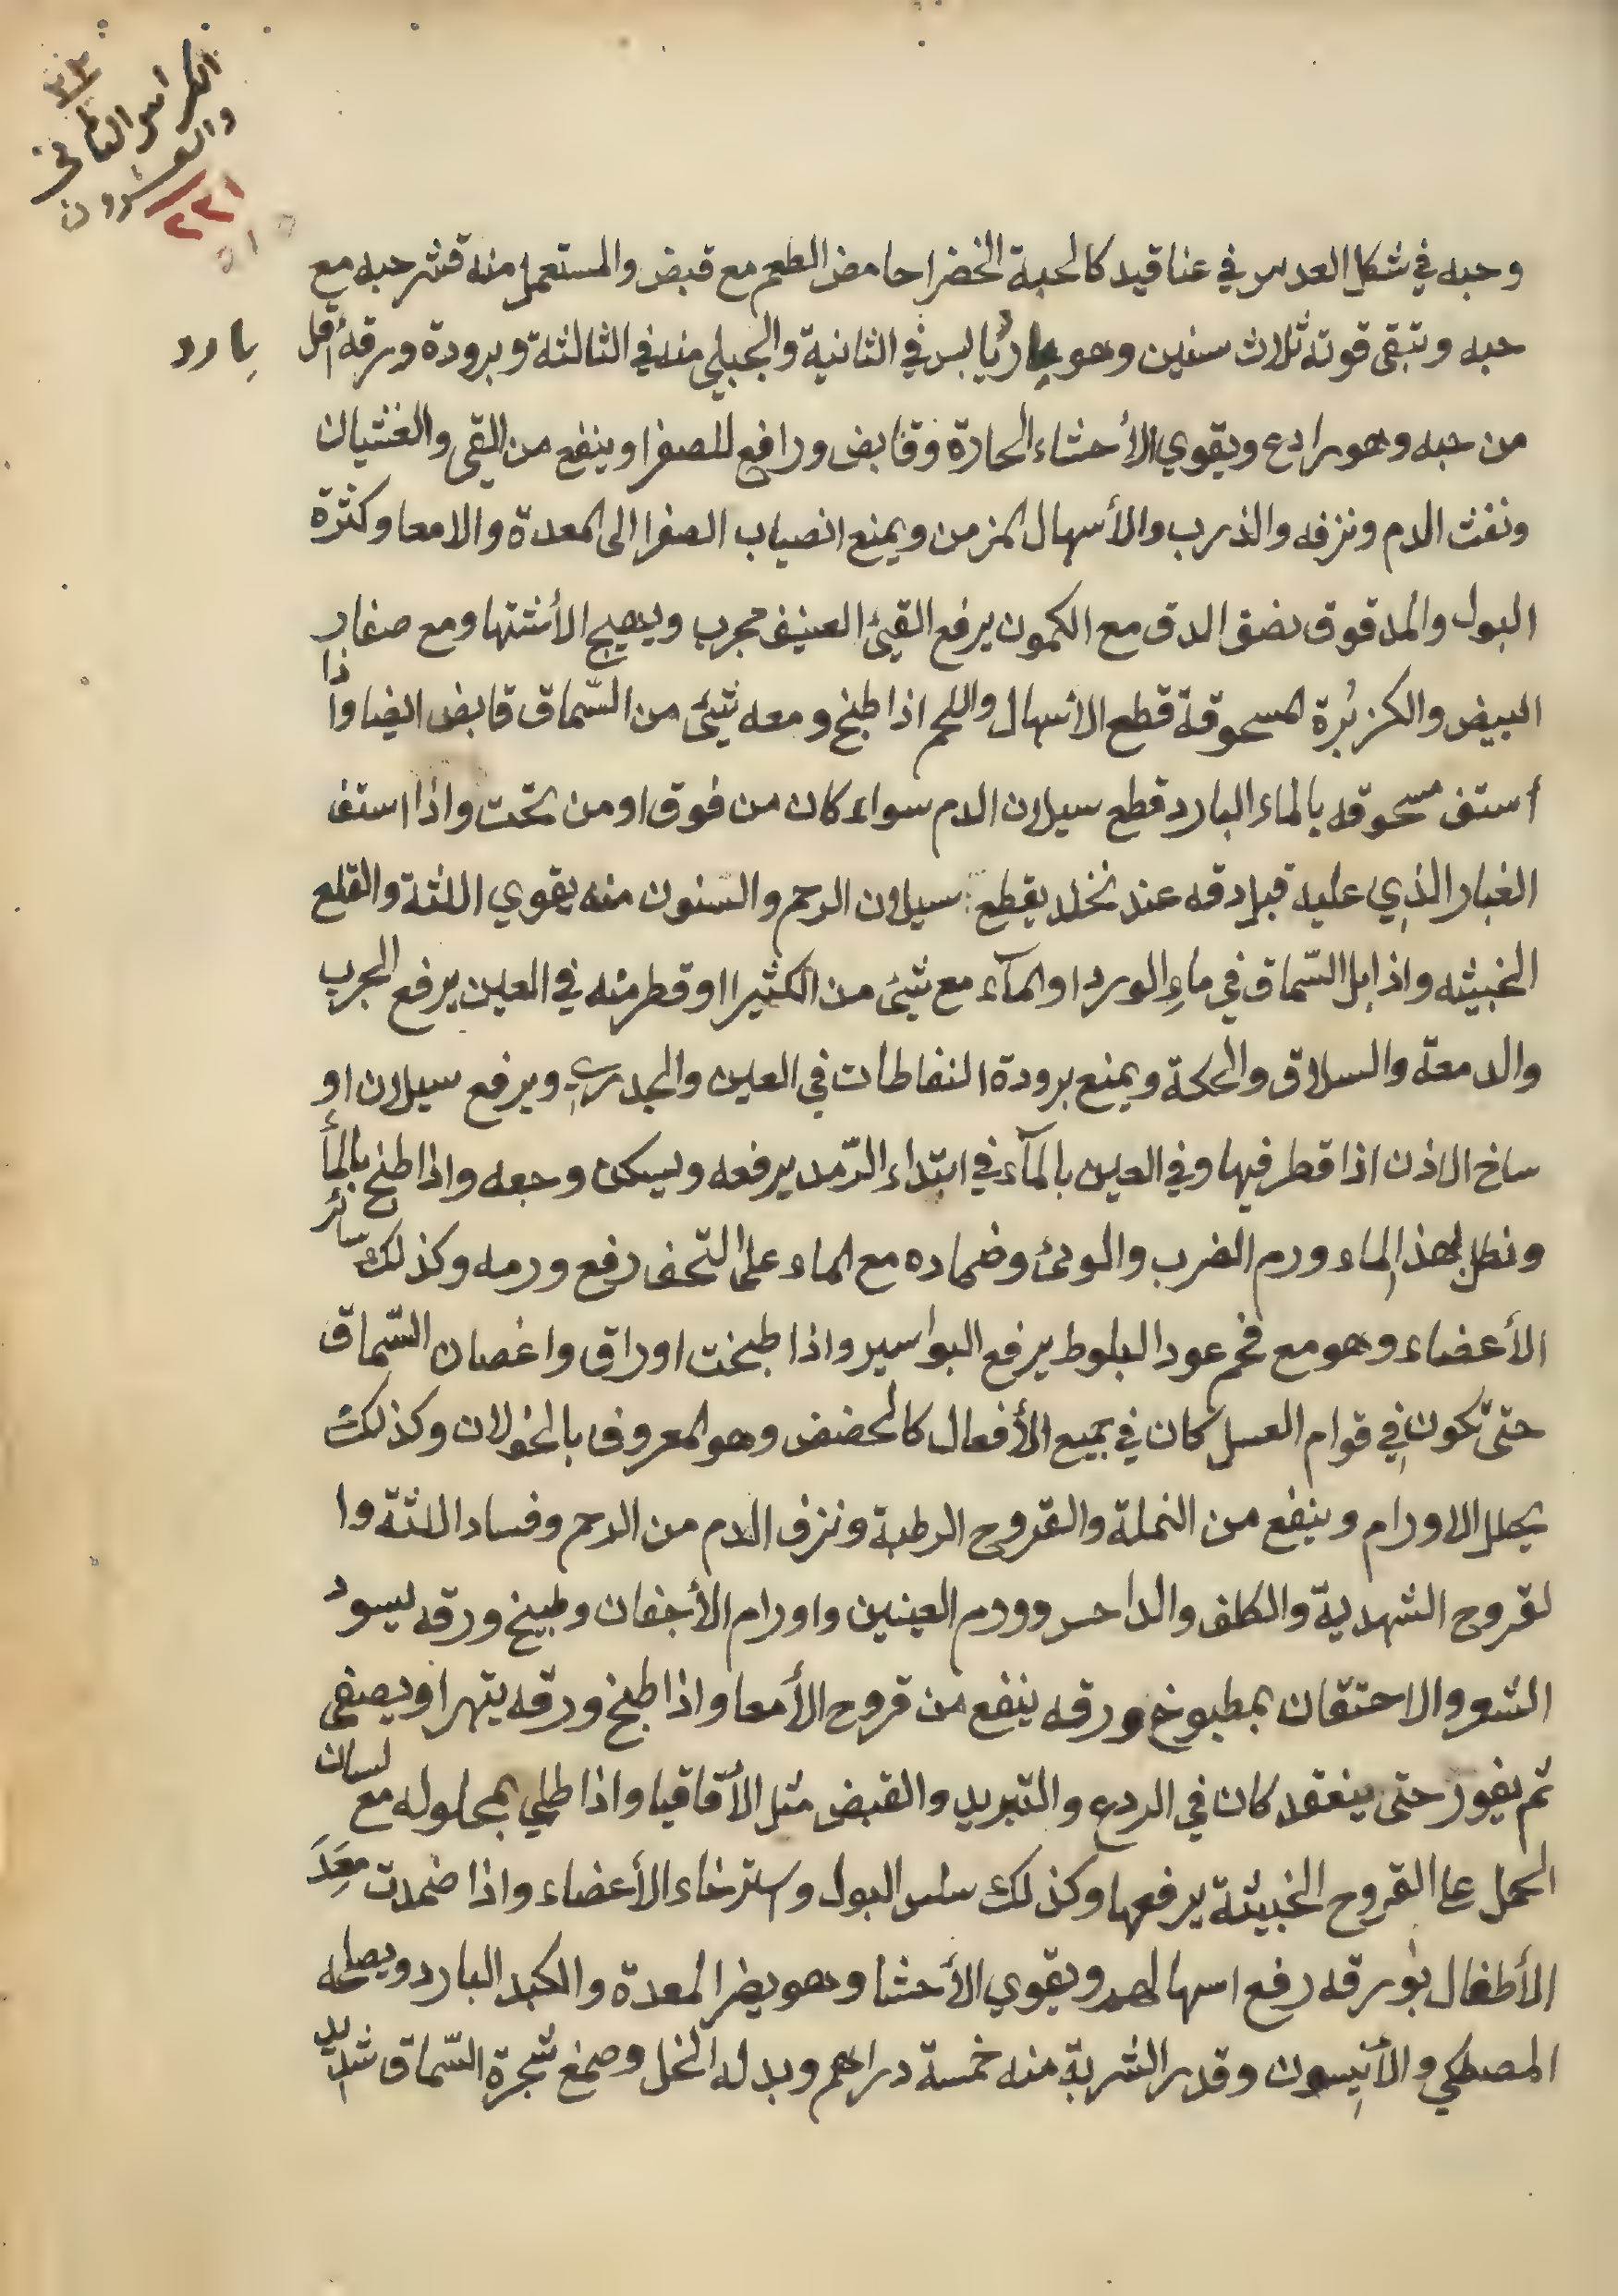 الكراس الثاني
والعشرون
٢٢
٢٣١
وحبه في شكل العدس في عناقيد كالحبة الخضرا حامض الطعم مع قبض والمستعمل منه قشر حبه مع
حبه وتبقى قوته ثلاث سنين وهو بارد يابس في الثانية والجبلي منه في الثالثة وبرودة ورقه أقل
بارد
من حبه وهو رادع ويقوي الأحشاء الحارة وقابض ورافع للصفرا وينفع من القى والغثيان
ونفث الدم ونزفه والذرب والأسهال المزمن ويمنع انصباب الصفرا الى المعدة والامعا وكثرة
البول والمدقوق نصف الدق مع الكمون يرفع القيئ العنيف مجرب ويهيج الأشتها ومع صفار
البيض والكزبرة المسحوقة قطع الاسهال واللحم اذا طبخ ومعه شيئ من السّماق قابض ايضا واذا
أستف مسحوقه بالماء البارد قطع سيلان الدم سواء كان من فوق او من تحت واذا استف
الغبار الذي عليه قبل دقه عند نخله يقطع سيلان الرحم والسنون منه يقوي اللثة والقلع
الخبيثه واذا بل السّماق في ماء الورد او المآء مع شيئ من الكثيرا او قطر منه في العين يرفع الجرب
والدمعة والسلاق والحكة ويمنع برودة النفاطات في العين والجدري ويرفع سيلان او
ساخ الاذن اذا قطر فيها وفي العين بالمآء في ابتداء الرّمد يرفعه ويسكن وجعه واذا طبخ بالمأ
ونطل بهذا الماء ورم الضرب والوثئ وضماده مع الماء على القحف رفع ورمه وكذلك سائر
الأعضاء وهو مع فحم عود البلوط يرفع البواسير واذا طبخت اوراق واغصان السّماق
حتى تكون في قوام العسل كان في جميع الأفعال كالحضض وهو المعروف بالخولان وكذلك
يحلل الاورام وينفع من النملة والقروح الرطبة ونزف الدم من الرحم وفساد اللثة وا
لقروح الشهدية والكلف والداحس وورم العينين واورام الأجفان وطبيخ ورقه يسود
الشعر والاحتقان بمطبوخ ورقه ينفع من قروح الأمعا واذا طبخ ورقه يتهرا ويصفى
ثم يفور حتى ينعقد كان في الردع والتبريد والقبض مثل الأقاقيا واذا طلي بمحلوله مع لسان
الحمل على القروح الخبيثة يرفعها وكذلك سلس البول واسترخاء الأعضاء واذا ضمدت مِعَدَ
الأطفال بورقه رفع اسهالهم ويقوي الأحشا وهو يضر المعدة والكبد البارد ويصلحه
المصطكي والأنيسون وقدر الشربة منه خمسة دراهم وبدله الخل وصمغ شجرة السّماق شديد